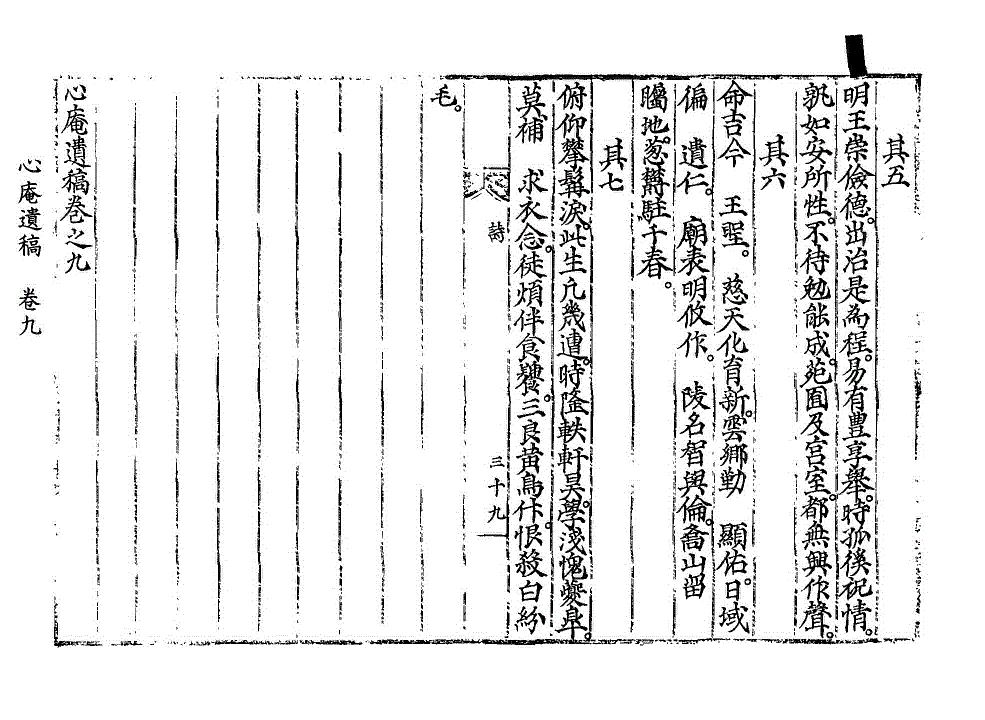 其五
明王崇儉德。出治是為程。易有豊享舉。時孤後祝情。
孰如安所性。不待勉能成。苑囿及宮室。都無興作聲。
其六
命吉今 王聖。 慈天化育新。雲鄉勤 顯佑。日域
徧 遺仁。 廟表明攸作。 陵名智與倫。喬山留
騰地。葱鬱駐千春。
其七
俯仰攀髯淚。此生凡幾遭。時隆軼軒昊。學淺愧夔皐。
莫補 求衣念。徒煩伴食饕。三良黃鳥什。恨殺白紛
詩
三十九
毛。
心庵遺稿卷之九
心庵遺稿 卷九